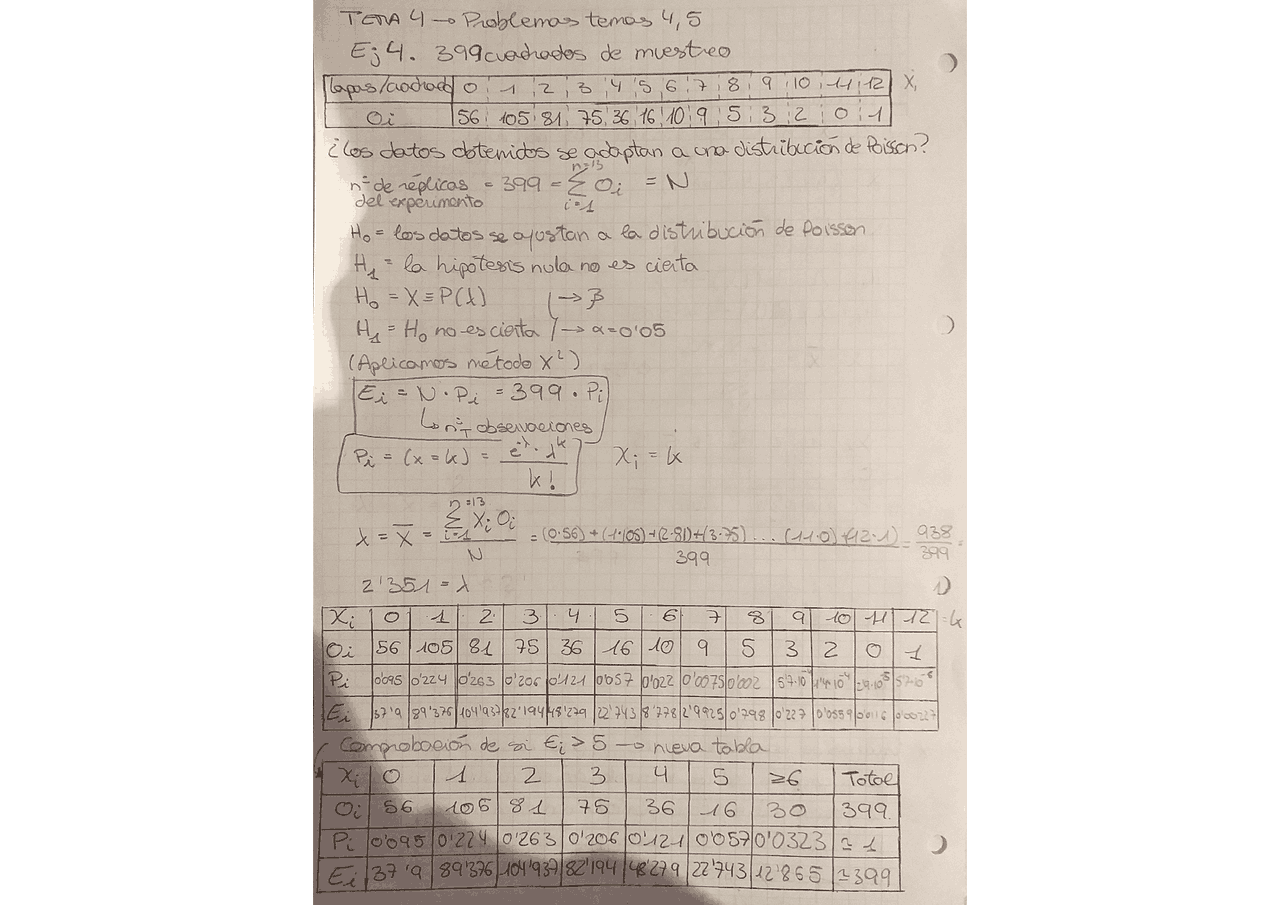 TEMA 4 → Problemas temas 4,5
Ej 4. 399 cuadrados de muestreo
lapas/cuadrado 0 1 2 3 4 5 6 7 8 9 10 11 12 Xi
Oi 56 105 81 75 36 16 10 9 5 3 2 0 1
¿Los datos obtenidos se adaptan a una distribución de Poisson?
nº de réplicas del experimento = 399 = Σ Oi = N
n=13
i=1
H₀ = los datos se ajustan a la distribución de Poisson
H₁ = la hipótesis nula no es cierta
H₀ = X ≡ P(λ) → β
H₁ = H₀ no es cierta → α = 0'05
(Aplicamos método X²)
Ei = N · Pi = 399 · Pi
↳ nºT observaciones
Pi = (x = k) = e^-λ · λ^k / k! Xi = k
λ = x̄ = Σ Xi Oi / N = (0·56) + (1·105) + (2·81) + (3·75) ... (11·0) + (12·1) / 399 = 938 / 399 =
n=13
i=1
2'351 = λ
Xi 0 1 2 3 4 5 6 7 8 9 10 11 12 = k
Oi 56 105 81 75 36 16 10 9 5 3 2 0 1
Pi 0'095 0'224 0'263 0'206 0'121 0'057 0'022 0'0075 0'002 5'7·10⁻⁴ 1'4·10⁻⁴ 2'9·10⁻⁵ 5'7·10⁻⁶
Ei 37'9 89'376 104'937 82'194 48'279 22'743 8'778 2'9925 0'798 0'227 0'0559 0'0116 0'00227
Comprobación de si Ei > 5 → nueva tabla
Xi 0 1 2 3 4 5 ≥6 Total
Oi 56 105 81 75 36 16 30 399
Pi 0'095 0'224 0'263 0'206 0'121 0'057 0'0323 ≃ 1
Ei 37'9 89'376 104'937 82'194 48'279 22'743 12'865 ≃ 399